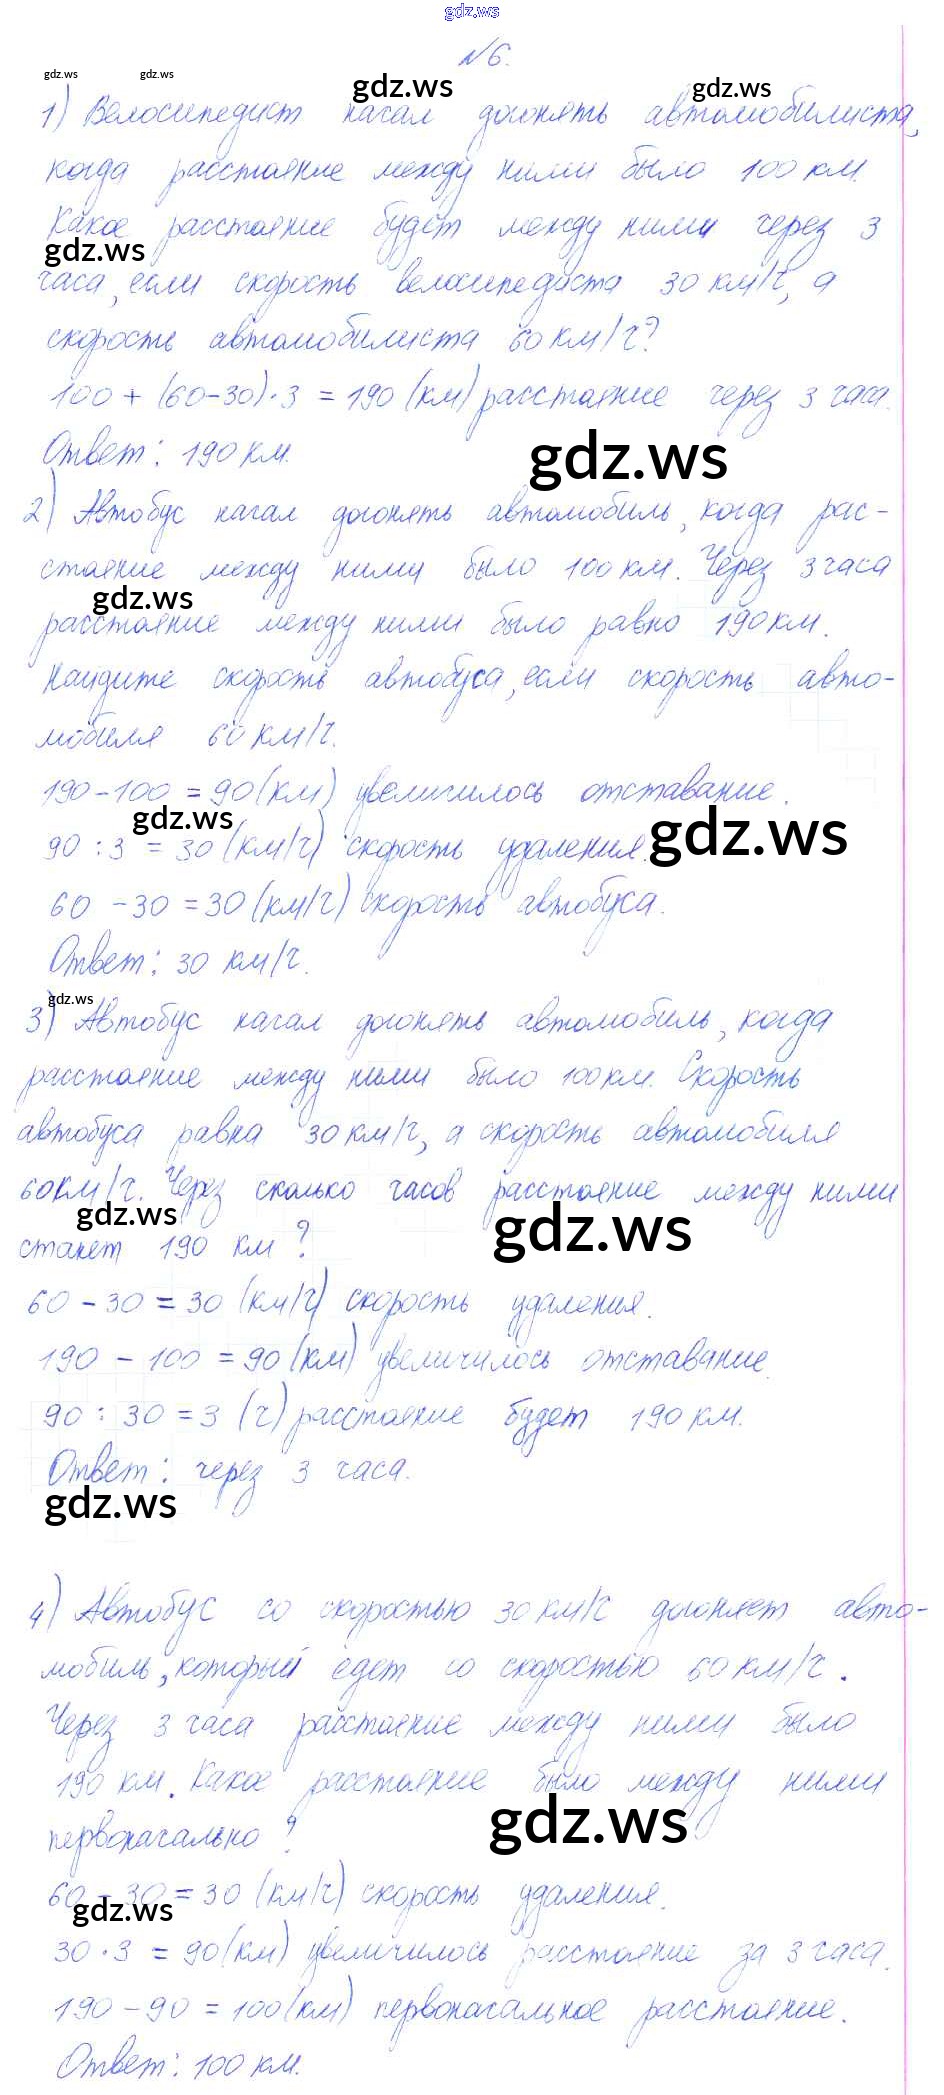 gdz.ws
№6.
gdz.ws gdz.ws gdz.ws gdz.ws
1) Велосипедист начал догонять автомобилиста,
когда расстояние между ними было 100 км.
Какое расстояние будет между ними через 3
gdz.ws
часа, если скорость велосипедиста 30 км/ч, а
скорость автомобилиста 60 км/ч?
100 + (60-30)·3 = 190 (км) расстояние через 3 часа.
Ответ: 190 км.
gdz.ws
2) Автобус начал догонять автомобиль, когда рас-
стояние между ними было 100 км. Через 3 часа
gdz.ws
расстояние между ними было равно 190 км.
Найдите скорость автобуса, если скорость авто-
мобиля 60 км/ч.
190-100 = 90 (км) увеличилось отставание.
gdz.ws gdz.ws
90 : 3 = 30 (км/ч) скорость удаления.
60 - 30 = 30 (км/ч) скорость автобуса.
Ответ: 30 км/ч.
gdz.ws
3) Автобус начал догонять автомобиль, когда
расстояние между ними было 100 км. Скорость
автобуса равна 30 км/ч, а скорость автомобиля
60 км/ч. Через сколько часов расстояние между ними
gdz.ws gdz.ws
станет 190 км?
60 - 30 = 30 (км/ч) скорость удаления.
190 - 100 = 90 (км) увеличилось отставание.
90 : 30 = 3 (ч) расстояние будет 190 км.
Ответ: через 3 часа.
gdz.ws
4) Автобус со скоростью 30 км/ч догоняет авто-
мобиль, который едет со скоростью 60 км/ч.
Через 3 часа расстояние между ними было
190 км. Какое расстояние было между ними
gdz.ws
первоначально?
60 - 30 = 30 (км/ч) скорость удаления.
gdz.ws
30 · 3 = 90 (км) увеличилось расстояние за 3 часа.
190 - 90 = 100 (км) первоначальное расстояние.
Ответ: 100 км.